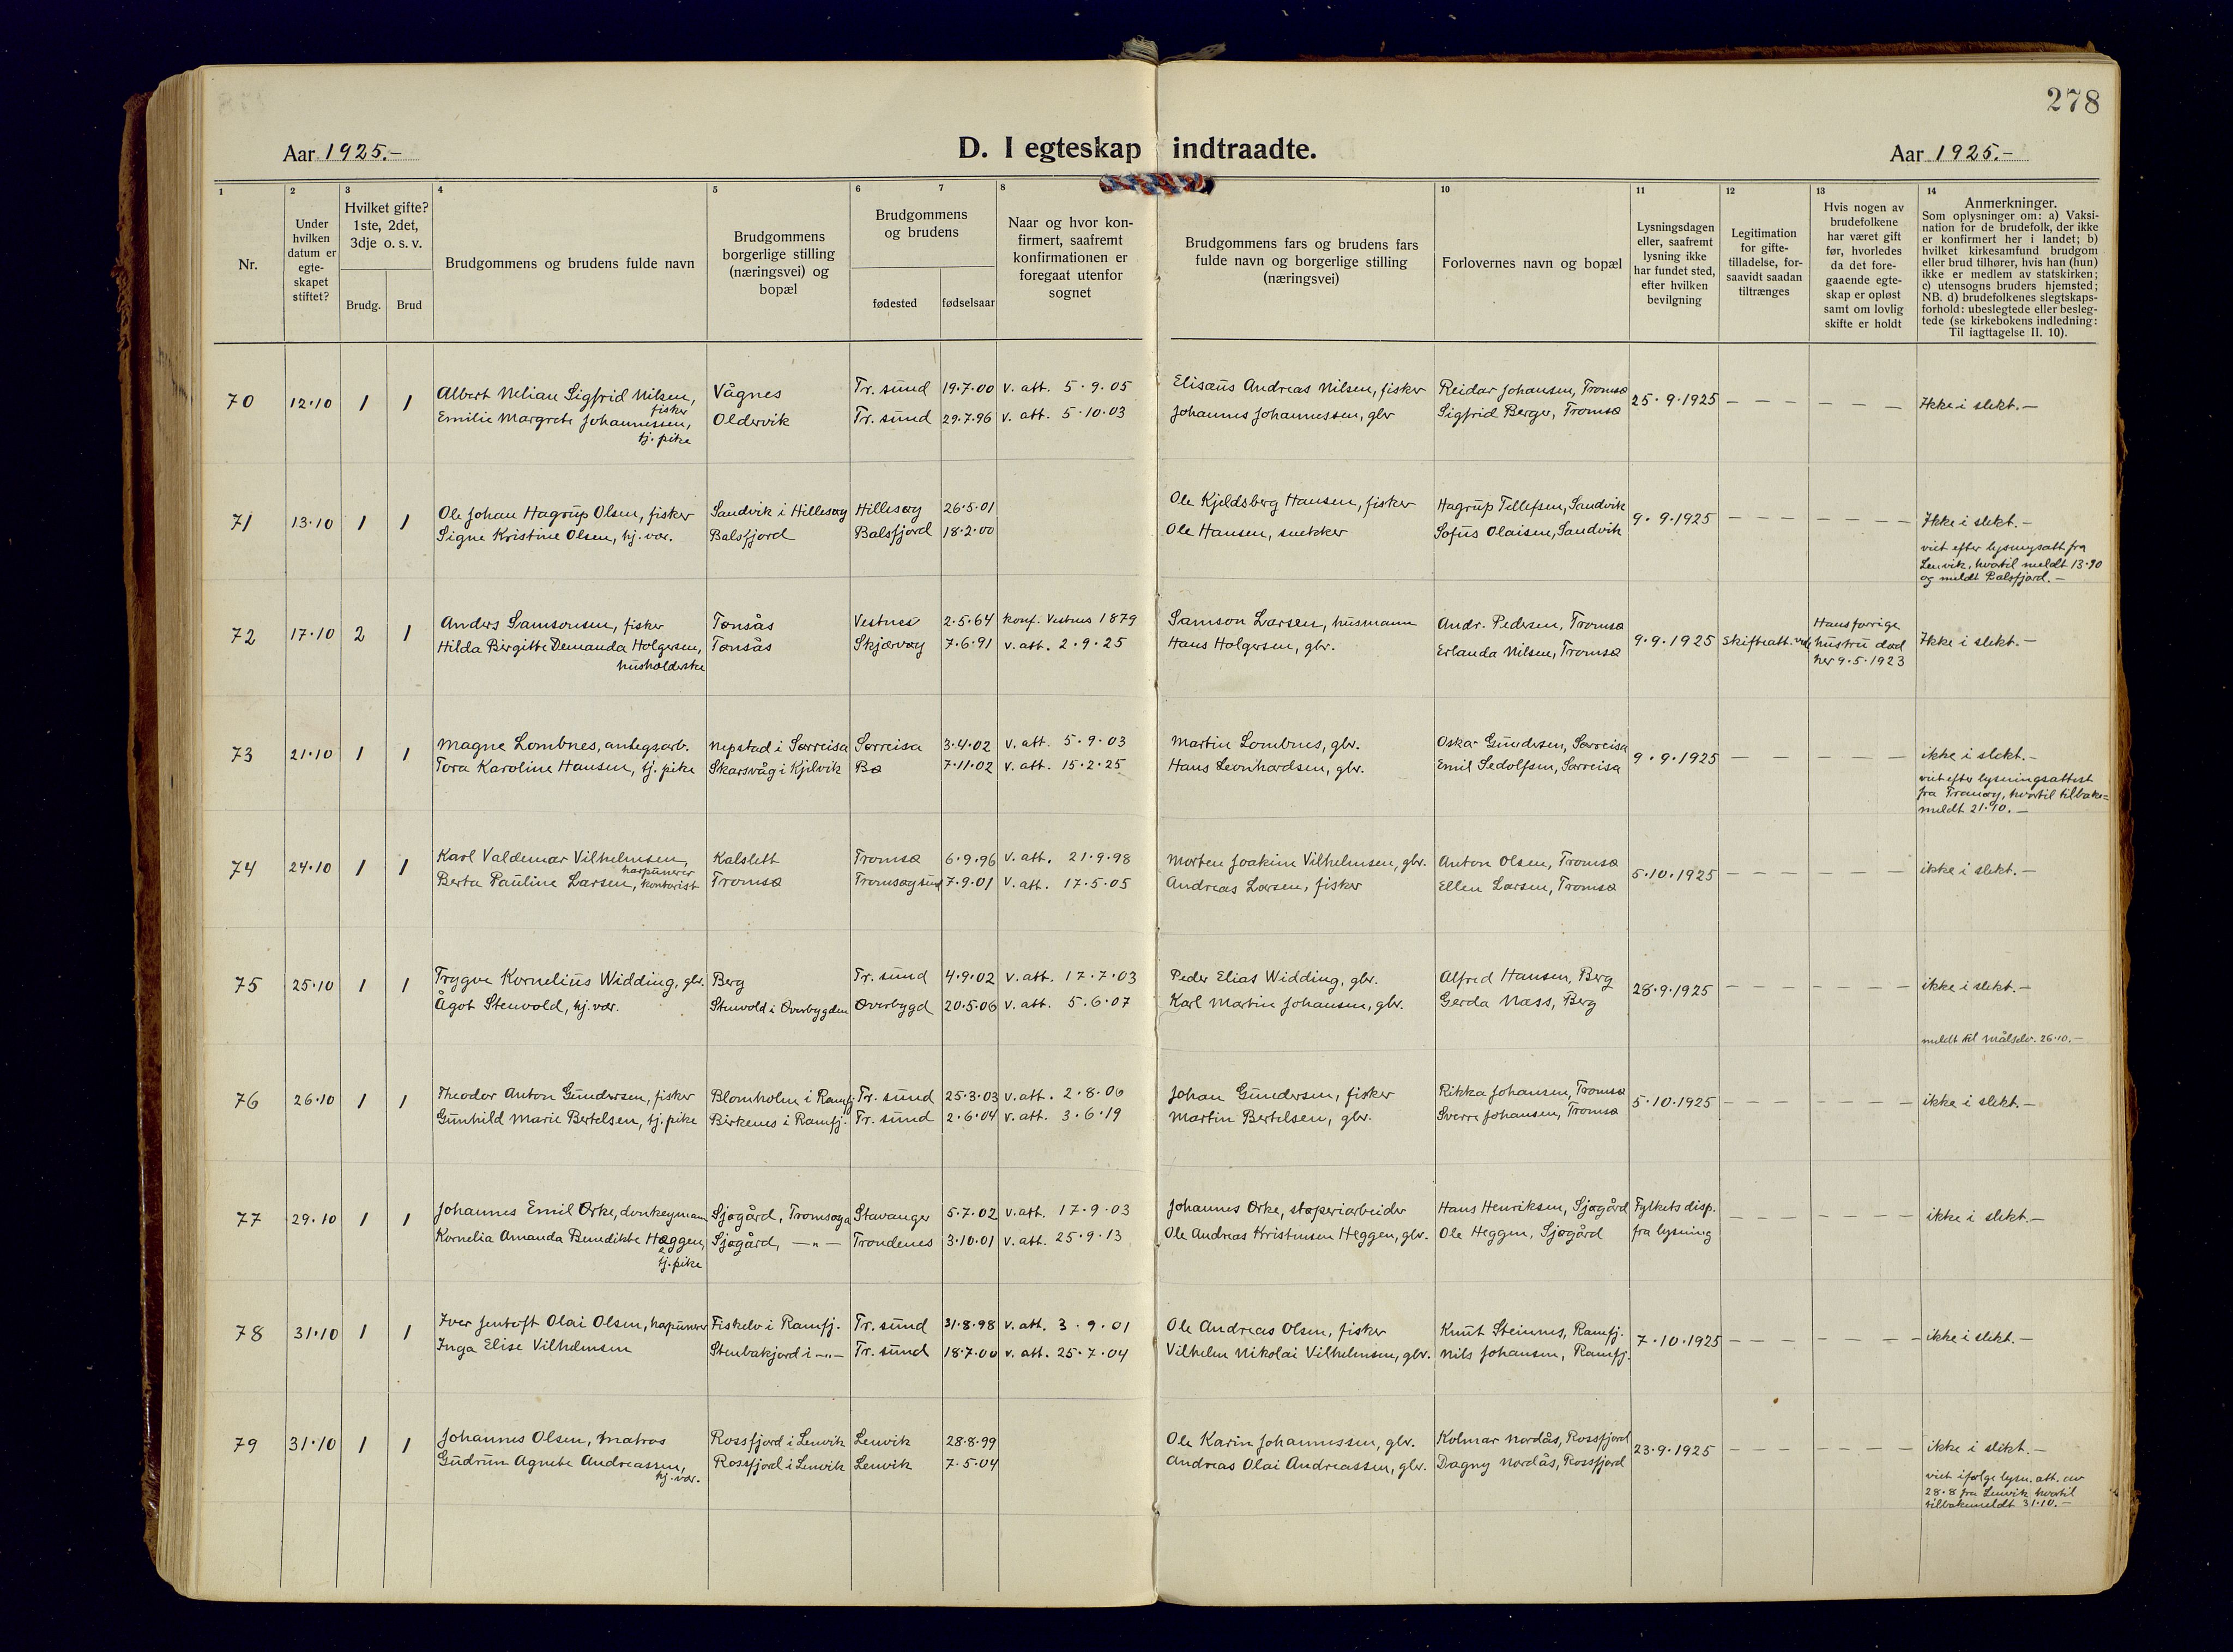 278
Aar 1925.-
D. I egteskap indtraadte.
Aar 1925.-
1 2 3 4 5 6 7 8 10 11 12 13 14
Nr.
Under hvilken datum er egte-skapet stiftet?
Hvilket gifte? 1ste, 2det, 3dje o. s. v.
Brudg. Brud
Brudgommens og brudens fulde navn
Brudgommens borgerlige stilling (næringsvei) og bopæl
Brudgommens og brudens
fødested fødselsaar
Naar og hvor kon-firmert, saafremt konfirmationen er foregaat utenfor sognet
Brudgommens fars og brudens fars fulde navn og borgerlige stilling (næringsvei)
Forlovernes navn og bopæl
Lysningsdagen eller, saafremt lysning ikke har fundet sted, efter hvilken bevilgning
Legitimation for gifte-tilladelse, for-saavidt saadan tiltrænges
Hvis nogen av brudefolkene har været gift før, hvorledes da det fore-gaaende egte-skap er opløst samt om lovlig skifte er holdt
Anmerkninger.
Som oplysninger om: a) Vaksi-nation for de brudefolk, der ikke er konfirmert her i landet; b) hvilket kirkesamfund brudgom eller brud tilhører, hvis han (hun) ikke er medlem av statskirken; c) utensogns bruders hjemsted; NB. d) brudefolkenes slegtskaps-forhold: ubeslegtede eller besleg-tede (se kirkebokens indledning: Til iagttagelse II. 10).
70 12.10 1 1 Albert Nelian Sigfrid Nilsen, fisker Vågnes Tr. sund 19.7.00 v. att. 5.9.05 Elisæus Andreas Nilsen, fisker Reidar Johansen, Tromsø 25.9.1925 — — — — — — Ikke i slekt.—
Emilie Margrete Johannessen, tj. pike Oldervik Tr. sund 29.7.96 v. att. 5.10.03 Johannes Johannessen, gbr Sigfrid Berger, Tromsø
71 13.10 1 1 Ole Johan Hagrup Olsen, fisker Sandvik i Hillesøy Hillesøy 26.5.01 Ole Kjeldsberg Hansen, fisker Hagrup Tellefsen, Sandvik 9.9.1925 — — — — — — Ikke i slekt.—
Signe Kristine Olsen, hj. vær. Balsfjord Balsfjord 18.2.00 Ole Hansen, snekker Sofus Olaisen, Sandvik
viet efter lysingsatt fra
Lenvik, hvortil meldt 13.10
og meldt Balsfjord.—
72 17.10 2 1 Anders Samsonsen, fisker Tønsås Vestnes 2.5.64 konf. Vestnes 1879 Samson Larsen, husmann Andr. Pedersen, Tromsø 9.9.1925 Skifteatt. Hans forrige hustru død her 9.5.1923 Ikke i slekt.—
Hilda Birgitte Demanda Holgersen, husholderske Tønsås Skjærvøy 7.6.91 v. att. 2.9.25 Hans Holgersen, gbr. Erlanda Nilsen, Tromsø
73 21.10 1 1 Magne Lombnes, anlegsarb. Nepstad i Sørreisa Sørreisa 3.4.02 v. att. 5.9.03 Martin Lombnes, gbr. Oskar Gundersen, Sørreisa 9.9.1925 — — — — — ikke i slekt.—
Tora Karoline Hansen, tj. pike Skarsvåg i Kjelvik Bø 7.11.02 v. att. 15.2.25 Hans Leonhardsen, gbr. Emil Sedolfsen, Sørreisa
viet efter lysningsattest
fra Tranøy, hvortil tilbake=
meldt 21.10.—
74 24.10 1 1 Karl Valdemar Vilhelmsen, harpunerer Kalslett Tromsø 6.9.96 v. att. 21.9.98 Morten Joakim Vilhelmsen, gbr. Anton Olsen, Tromsø 5.10.1925 — — — — — — ikke i slekt.—
Berta Pauline Larsen, kontorist Tromsø Tromsøysund 7.9.01 v. att. 17.5.05 Andreas Larsen, fisker Ellen Larsen, Tromsø
75 25.10 1 1 Trygve Kornelius Widding, gbr. Berg Tr. sund 4.9.02 v. att. 17.7.03 Peder Elias Widding, gbr. Alfred Hansen, Berg 28.9.1925 — — — — — — — ikke i slekt.—
Ågot Stenvold, hj. vær. Stenvold i Øverbygden Øverbygd 20.5.06 v. att. 5.6.07 Karl Martin Johansen, gbr. Gerda Næss, Berg
meldt til Målselv. 26.10.—
76 26.10 1 1 Theodor Anton Gundersen, fisker Blomholm i Ramfj. Tr. sund 25.3.03 v. att. 2.8.06 Johan Gundersen, fisker Rikka Johansen, Tromsø 5.10.1925 — — — — — — — ikke i slekt.—
Gunhild Marie Bertelsen, tj. pike Birkenes i Ramfj. Tr. sund 2.6.04 v. att. 3.6.19 Martin Bertelsen, gbr. Sverre Johansen, Tromsø
77 29.10 1 1 Johannes Emil Orke, donkeymann Sjøgård, Tromsøya Stavanger 5.7.02 v. att. 17.9.03 Johannes Orke, støperiarbeider Hans Henriksen, Sjøgård Fylkets disp. — — — — — — — ikke i slekt.—
Kornelia Amanda Benedikte Heggen, tj. pike Sjøgård, —"— Trondenes 3.10.01 v. att. 25.9.13 Ole Andreas Kristensen Heggen, gbr. Ole Heggen, Sjøgård fra lysning
78 31.10 1 1 Iver Jentoft Olai Olsen, hapunerer Fiskelv i Ramfj. Tr. sund 31.8.98 v. att. 3.9.01 Ole Andreas Olsen, fisker Knut Steinnes, Ramfj. 7.10.1925 — — — — — — — ikke i slekt.—
Inga Elise Vilhelmsen Stenbakjord i —"— Tr. sund 18.7.00 v. att. 25.7.04 Vilhelm Nikolai Vilhelmsen, gbr. Nils Johansen, Ramfj.
79 31.10 1 1 Johannes Olsen, matros Rossfjord i Lenvik Lenvik 28.8.99 Ole Karin Johannessen, gbr. Kolmar Nordås, Rossfjord 23.9.1925 — — — — — — — ikke i slekt.—
Gudrun Agnete Andreassen, hj. vær. Rossfjord i Lenvik Lenvik 7.5.04 Andreas Olai Andreassen, gbr. Dagny Nordås, Rossfjord
viet ifølge lysn. att. av
28.8 fra Lenvik hvortil
tilbakemeldt 31.10.—